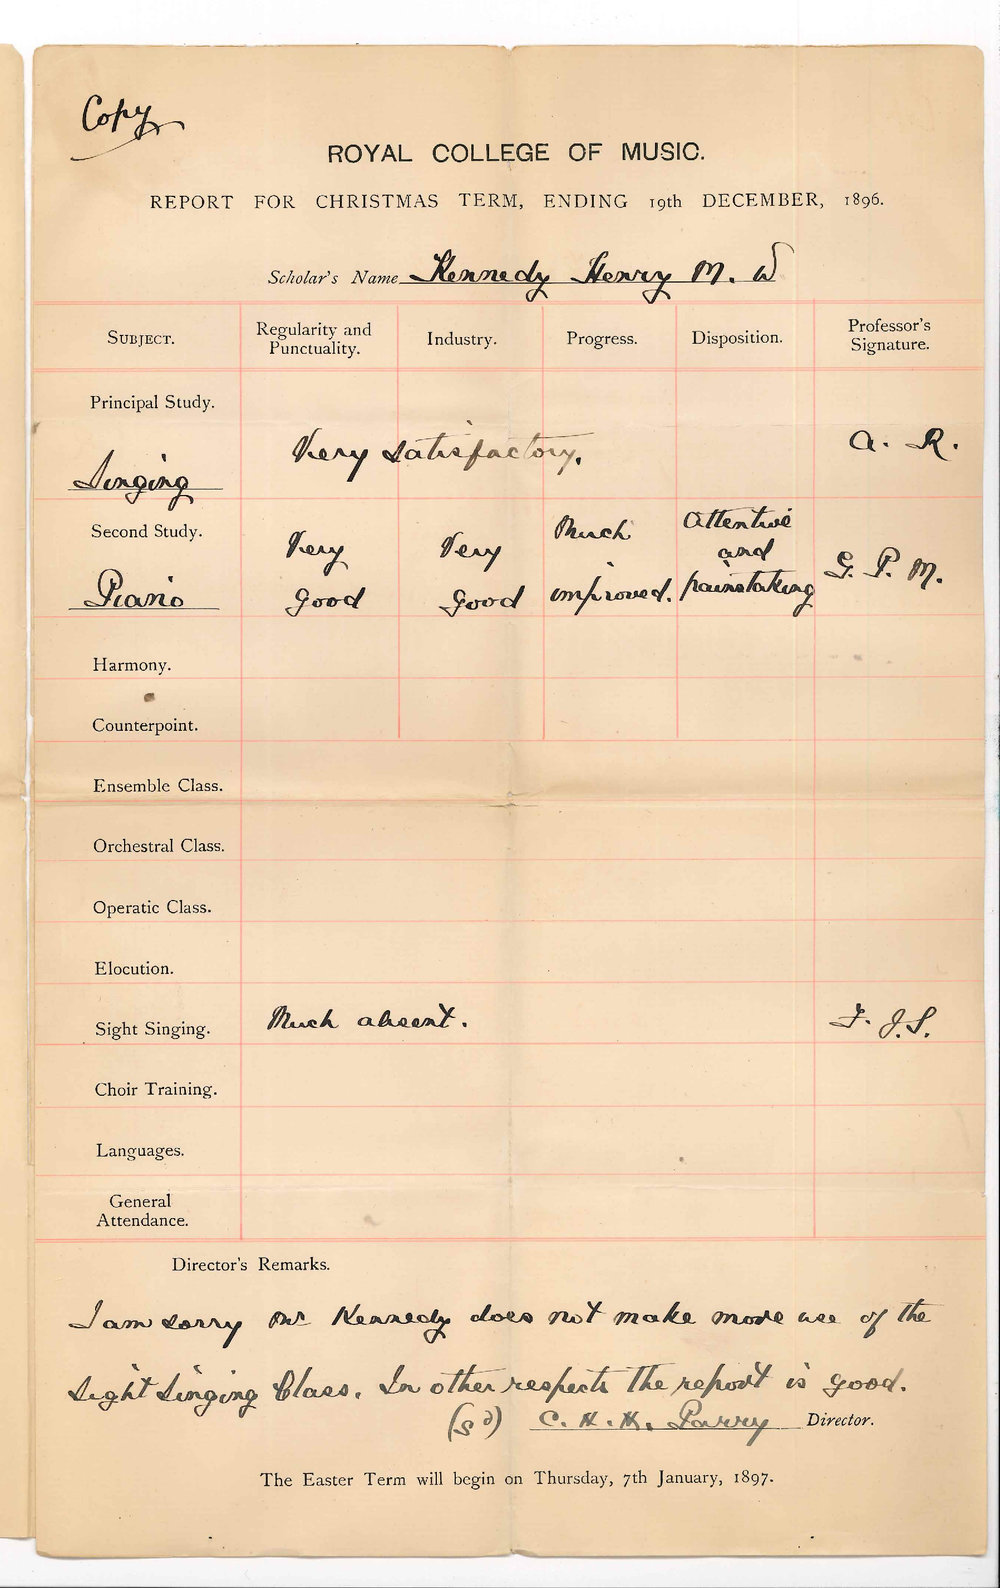 Copy
ROYAL COLLEGE OF MUSIC.
REPORT FOR CHRISTMAS TERM, ENDING 19th DECEMBER, 1896.
Scholar's Name Kennedy Henry M. W
SUBJECT. Regularity and Punctuality. Industry. Progress. Disposition. Professor's Signature.
Principal Study.
Singing Very satisfactory. A. R.
Second Study.
Piano Very good Very good Much improved. Attentive and painstaking G. P. M.
Harmony.
Counterpoint.
Ensemble Class.
Orchestral Class.
Operatic Class.
Elocution.
Sight Singing. Much absent. F. J. S.
Choir Training.
Languages.
General
Attendance.
Director's Remarks.
I am sorry Mr Kennedy does not make more use of the
Sight Singing Class. In other respects the report is good.
(Sd) C. H. H. Parry Director.
The Easter Term will begin on Thursday, 7th January, 1897.